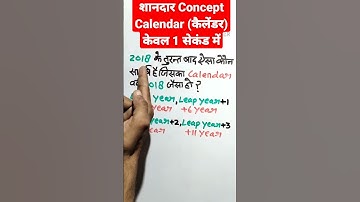 शानदार Concept
Calendar (कैलेंडर)
केवल 1 सेकंड में
2018 के तुरन्त बाद ऐसा कौन
सा वर्ष है जिसका Calendar
2018 जैसा हो ?
year, Leap year+1
year +6 year
year+2, Leap year+3
year +11 year